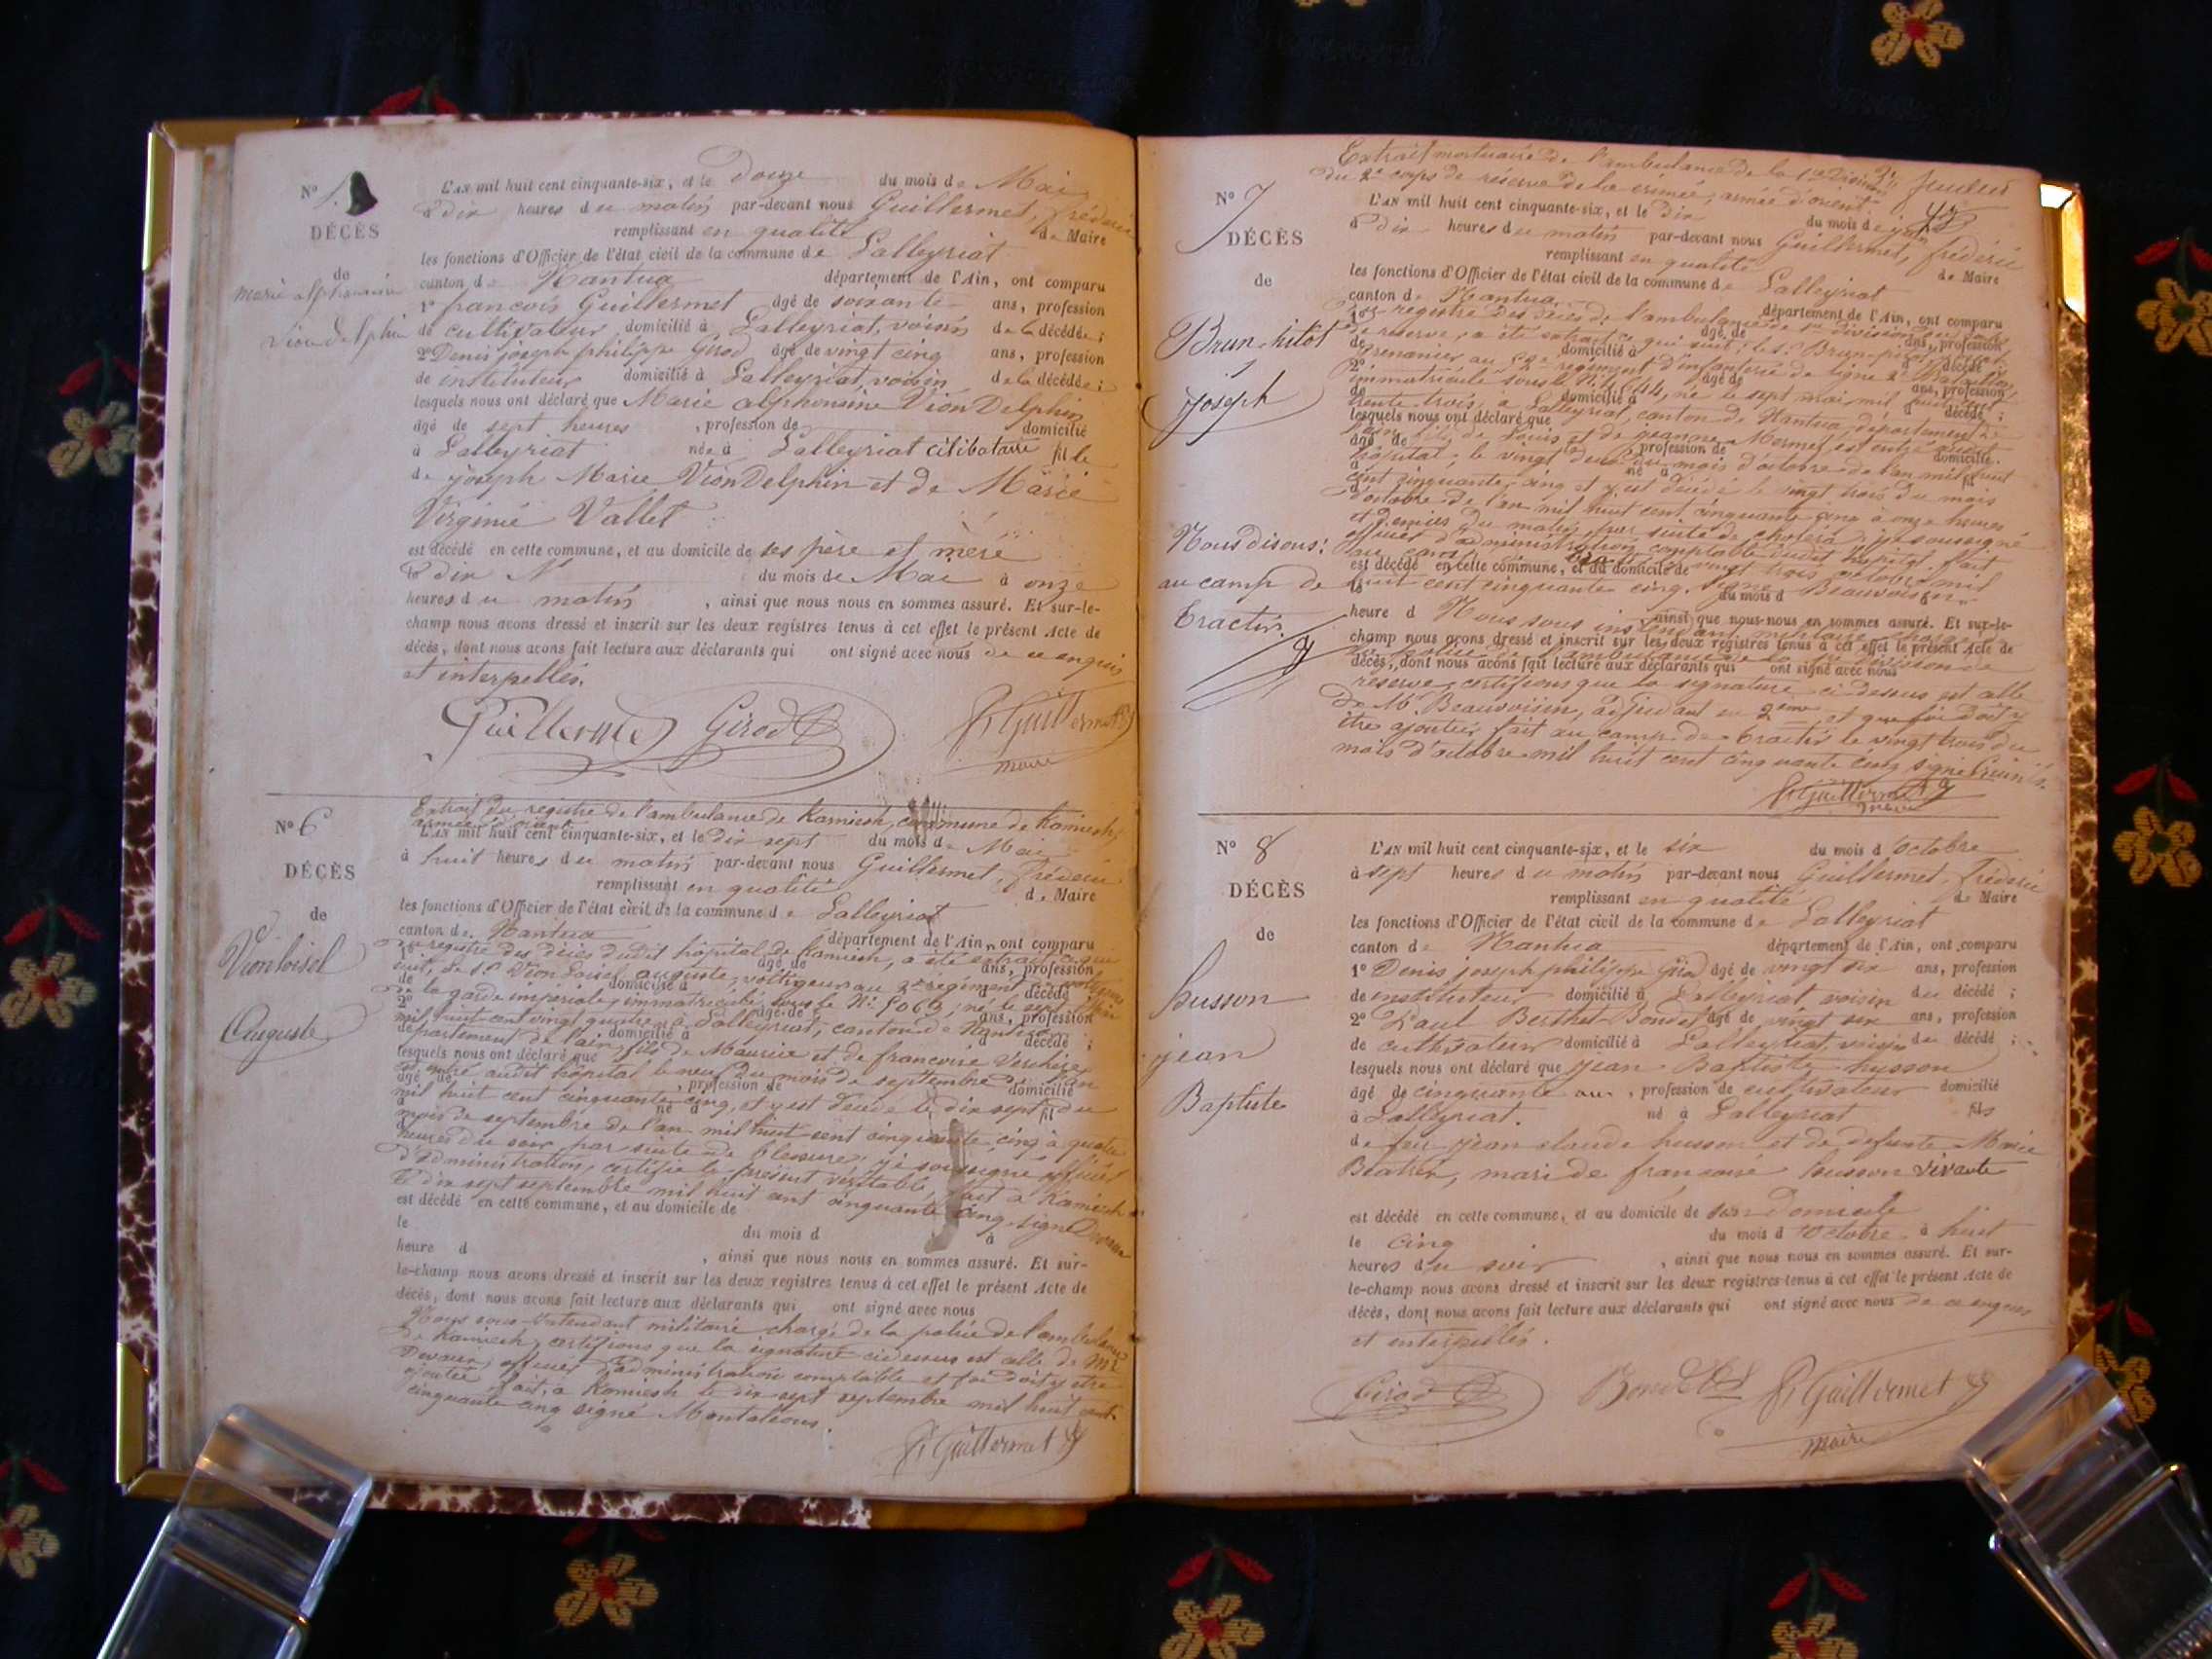 N° 5.
DÉCÈS
de
marie alphonsine
vion delphin
L'AN mil huit cent cinquante-six, et le douze du mois de Mai
à dix heures du matin par-devant nous Guillermet, frédéric
remplissant en qualité de Maire
les fonctions d'Officier de l'état civil de la commune de Lalleyriat
canton de Nantua département de l'Ain, ont comparu
1° francois Guillermet âgé de soixante ans, profession
de cultivateur domicilié à Lalleyriat, voisin de la décédée ;
2° Denis joseph philippe Girod âgé de vingt cinq ans, profession
de instituteur domicilié à Lalleyriat, voisin de la décédée ;
lesquels nous ont déclaré que Marie alphonsine Vion Delphin
âgé de sept heures , profession de domicilié
à Lalleyriat née à Lalleyriat célibataire fille
de joseph Marie Vion Delphin et de Marie
Virginie Vallet
est décédé en cette commune, et au domicile de ses père et mère
le dix du mois de Mai à onze
heures du matin , ainsi que nous nous en sommes assuré. Et sur-le-
champ nous avons dressé et inscrit sur les deux registres tenus à cet effet le présent Acte de
décès, dont nous avons fait lecture aux déclarants qui ont signé avec nous de ce enquis
et interpellés.
Guillermet Girod f. Guillermet
maire
N° 6
DÉCÈS
de
Vion loisel
Auguste
Extrait du registre de l'ambulance de Kamiesh, commune de Kamiesh,
armée d'orient
L'AN mil huit cent cinquante-six, et le dix sept du mois de Mai
à huit heures du matin par-devant nous Guillermet, frédéric
remplissant en qualité de Maire
les fonctions d'Officier de l'état civil de la commune de Lalleyriat
canton de Nantua département de l'Ain, ont comparu
Du registre des décès dudit hôpital de Kamiesh, a été extrait ce qui
1° âgé de ans, profession
suit, le Sr Vion Loisel auguste, voltigeur au 2e régiment de voltigeurs
de domicilié à d décédé
de la garde impériale, immatriculé sous le N° 5069, né le sept
2° âgé de ans, profession
mil huit cent vingt quatre à Lalleyriat, canton de Nantua
de domicilié à d décédé ;
département de l'ain, fils de Maurice et de francoise
lesquels nous ont déclaré que
est entré audit hôpital le neuf du mois de septembre de l'an
âgé de , profession de domicilié
mil huit cent cinquante cinq, et y est décédé le dix sept du
à né à fil
mois de septembre de l'an mil huit cent cinquante cinq à quatre
heures du soir par suite de blessures, je soussigné officier
d'administration, certifie le présent véritable, fait à Kamiesh
le dix sept septembre mil huit cent cinquante cinq. signé
est décédé en cette commune, et au domicile de
le du mois d à
heure d , ainsi que nous nous en sommes assuré. Et sur-
le-champ nous avons dressé et inscrit sur les deux registres tenus à cet effet le présent Acte de
décès, dont nous avons fait lecture aux déclarants qui ont signé avec nous
Nous sous-Intendant militaire chargé de la police de l'ambulance
de Kamiesh, certifions que la signature ci dessus est celle de Mr
officier d'administration comptable et foi doit y être
ajoutée fait, à Kamiesh le dix sept septembre mil huit cent
cinquante cinq signé
f. Guillermet
Extrait mortuaire de l'ambulance de la 1ere Division
du 2e corps de réserve de la crimée, armée d'orient
N° 7
DÉCÈS
de
Brun-hitot
joseph
Nous disons:
au camp de
Tractir.
L'AN mil huit cent cinquante-six, et le dix du mois de juin
à dix heures du matin par-devant nous Guillermet, frédéric
remplissant en qualité de Maire
les fonctions d'Officier de l'état civil de la commune de Lalleyriat
canton de Nantua département de l'Ain, ont comparu
Du registre des décès de l'ambulance de 1re division
1° âgé de ans, profession
de réserve, a été extrait ce qui suit, le Sr Brun
de domicilié à d décédé
Grenadier au régiment d'infanterie de ligne 2e Bataillon
2° âgé de ans, profession
immatriculé sous le N° né le sept mai mil huit cent
de domicilié à d décédé ;
trente trois, à Lalleyriat, canton de Nantua, département de
lesquels nous ont déclaré que
l'ain fils de Louis et de jeanne Mermet, est entré audit
âgé de , profession de domicilié
hôpital, le vingt deux du mois d'octobre de l'an mil huit
à né à fil
cent cinquante cinq et y est décédé le vingt trois du mois
d
d'octobre de l'an mil huit cent cinquante cinq à onze heures
et demies du matin par suite de choléra, je soussigné
officier d'administration comptable dudit hôpital. Fait
au camp vingt trois octobre mil
est décédé en cette commune, et au domicile de
huit cent cinquante cinq. signé Beauvoisin
le du mois d à
heure d , ainsi que nous nous en sommes assuré. Et sur-le-
Nous sous intendant militaire chargé de
champ nous avons dressé et inscrit sur les deux registres tenus à cet effet le présent Acte de
la police de l'ambulance de la 1re division de
décès, dont nous avons fait lecture aux déclarants qui ont signé avec nous
réserve, certifions que la signature ci dessus est celle
de M. Beauvoisin, adjudant en 2eme et que foi doit y
être ajoutée fait au camp de Tractir le vingt trois du
mois d'octobre mil huit cent cinquante cinq signé
f. Guillermet
maire
N° 8
DÉCÈS
de
husson
jean
Baptiste
L'AN mil huit cent cinquante-six, et le six du mois d octobre
à sept heures du matin par-devant nous Guillermet, frédéric
remplissant en qualité de Maire
les fonctions d'Officier de l'état civil de la commune de Lalleyriat
canton de Nantua département de l'Ain, ont comparu
1° Denis joseph philippe Girod âgé de vingt six ans, profession
de instituteur domicilié à Lalleyriat voisin du décédé ;
2° Paul Berthet-Bondet âgé de vingt six ans, profession
de cultivateur domicilié à Lalleyriat, voisin du décédé ;
lesquels nous ont déclaré que jean Baptiste husson
âgé de cinquante ans , profession de cultivateur domicilié
à Lalleyriat. né à Lalleyriat fils
de feu jean claude husson et de défunte Marie
mari de francoise husson vivante
est décédé en cette commune, et au domicile de son Domicile
le cinq du mois d octobre à huit
heures du soir , ainsi que nous nous en sommes assuré. Et sur-
le-champ nous avons dressé et inscrit sur les deux registres tenus à cet effet le présent Acte de
décès, dont nous avons fait lecture aux déclarants qui ont signé avec nous de ce enquis
et interpellés.
Girod Bondet f. Guillermet
maire